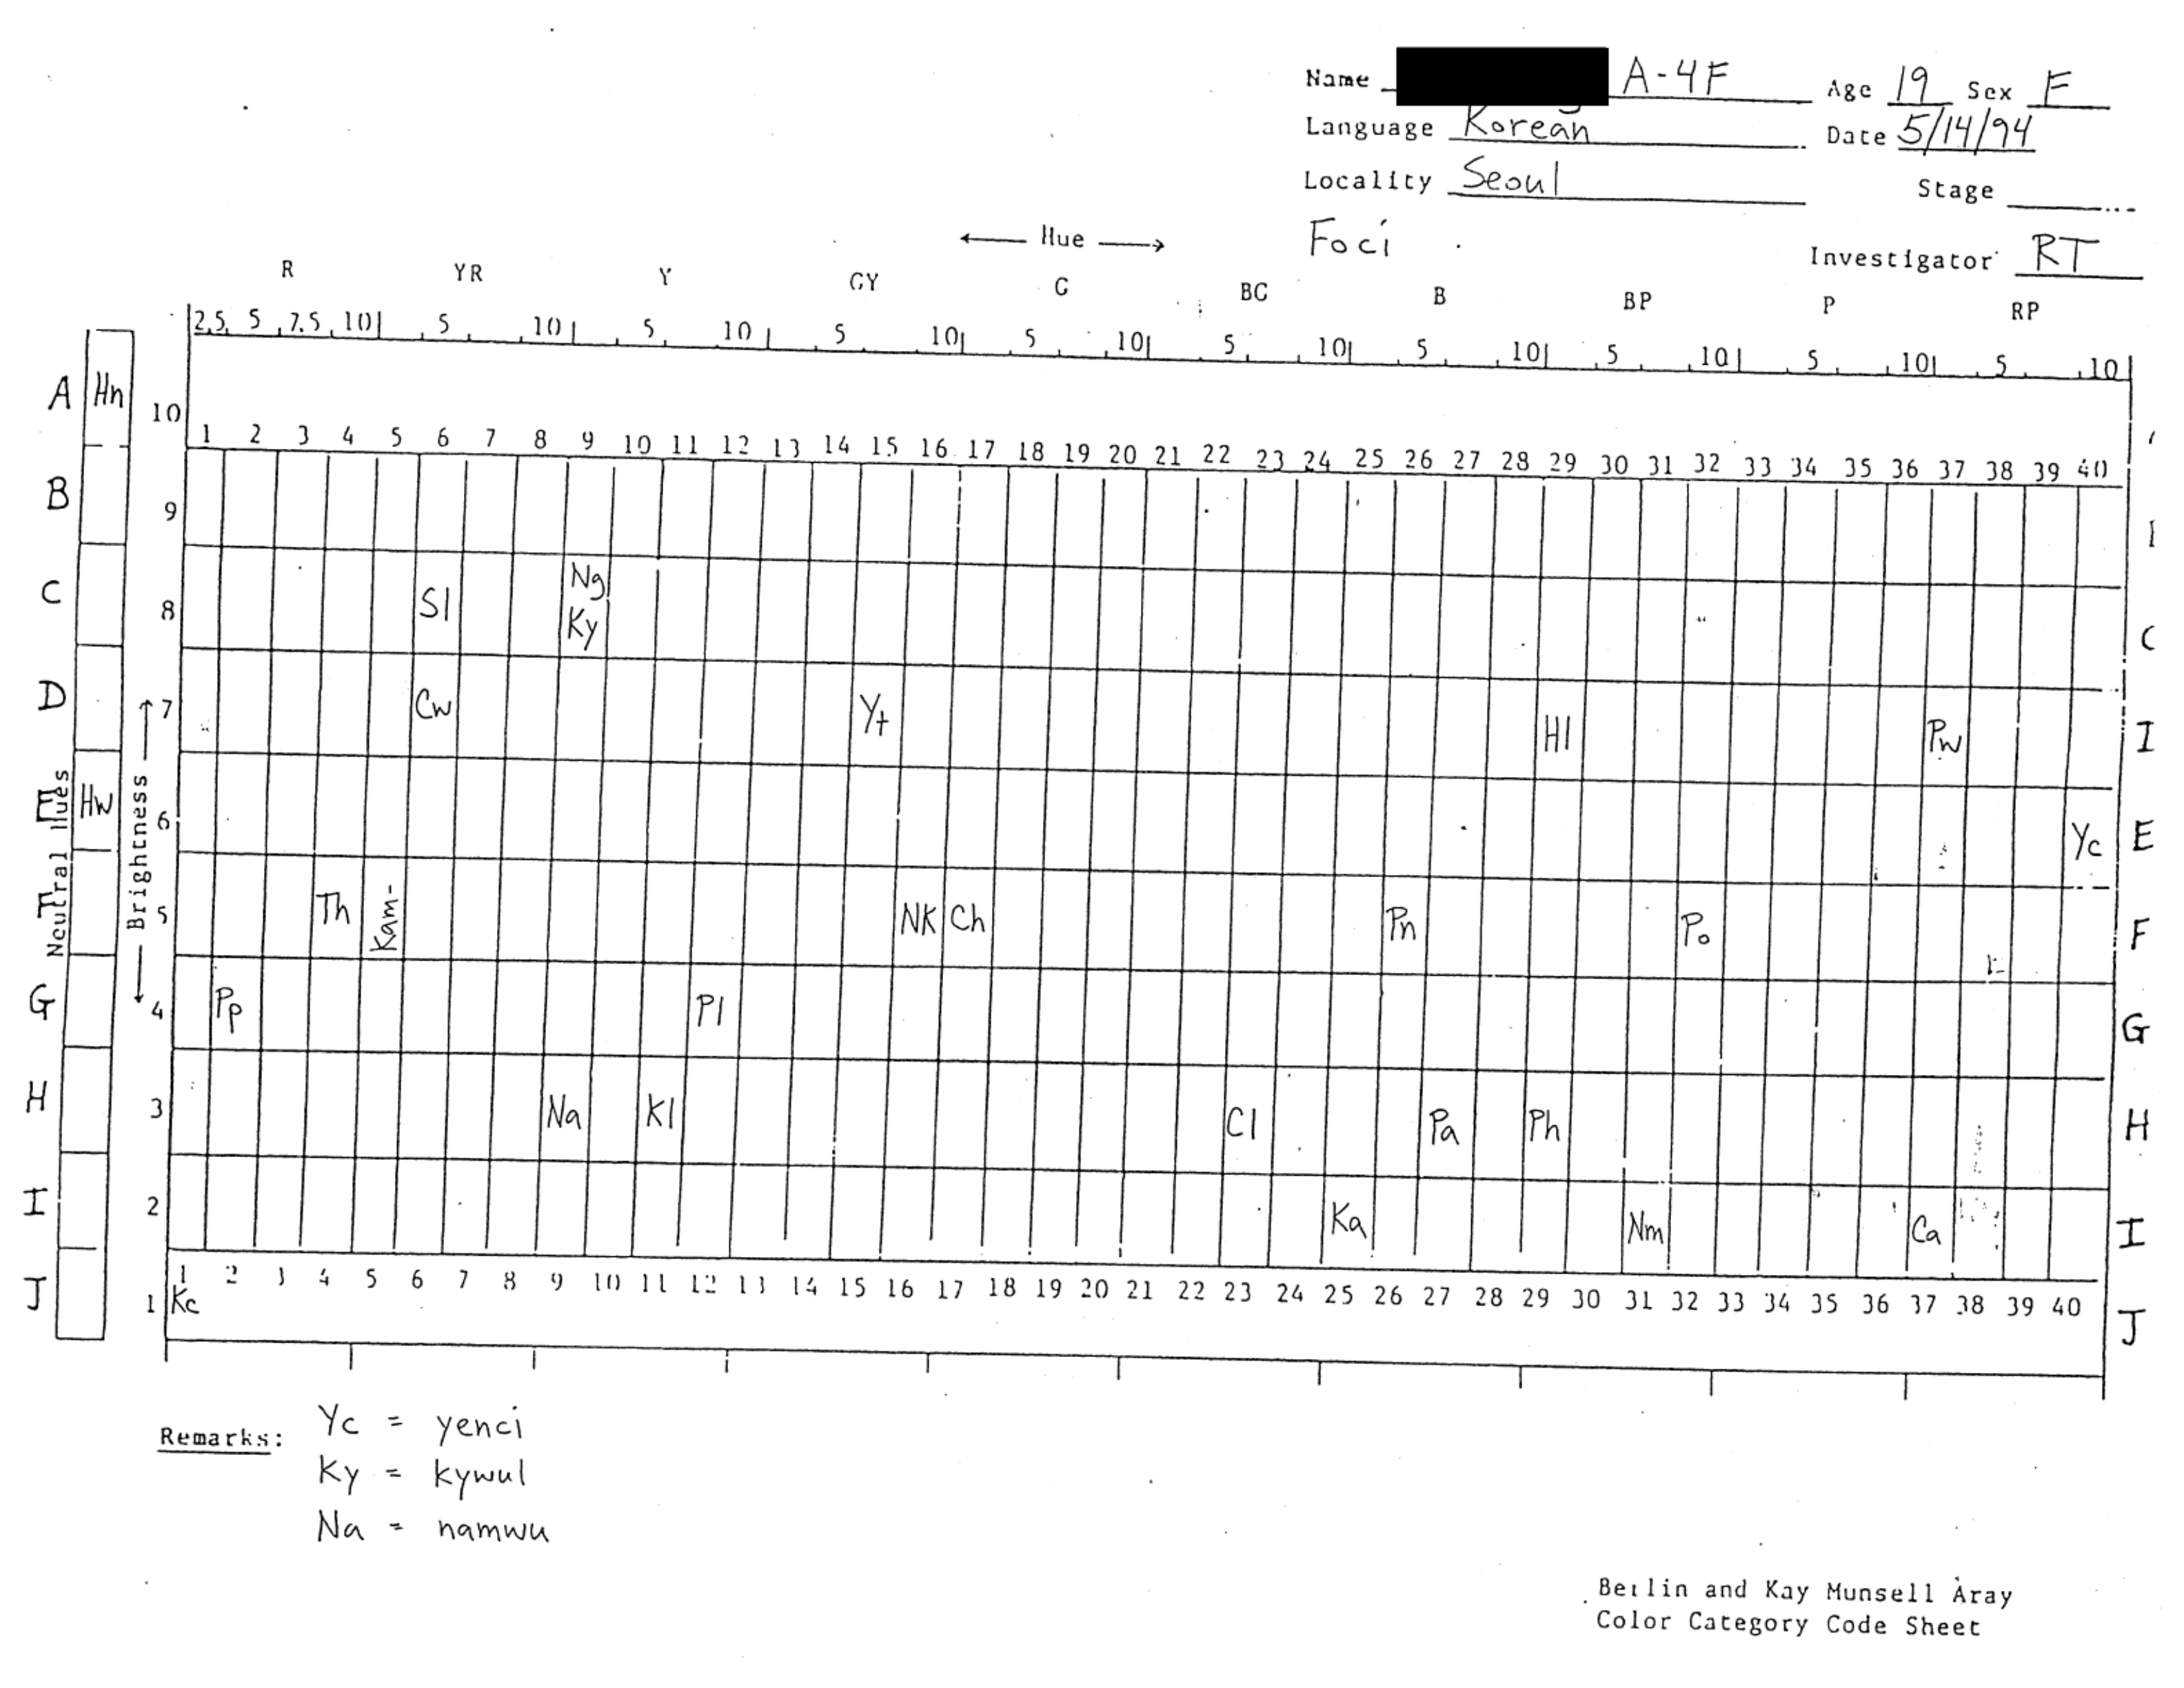 Name A-4F Age 19 Sex F
Language Korean Date 5/14/94
Locality Seoul Stage
Foci Investigator RT
← Hue →
R YR Y GY G BG B BP P RP
2.5 5 7.5 10 5 10 5 10 5 10 5 10 5 10 5 10 5 10 5 10 5 10
A Hn 10
1 2 3 4 5 6 7 8 9 10 11 12 13 14 15 16 17 18 19 20 21 22 23 24 25 26 27 28 29 30 31 32 33 34 35 36 37 38 39 40
B 9
C 8 Sl Ng C
Ky
D 7 Cw Yt Hl Pw I
E Hw 6 Yc E
F 5 Th Kam- NK Ch Pn Po F
G 4 Pp Pl G
H 3 Na Kl Cl Pa Ph H
I 2 Ka Nm Ca I
1 2 3 4 5 6 7 8 9 10 11 12 13 14 15 16 17 18 19 20 21 22 23 24 25 26 27 28 29 30 31 32 33 34 35 36 37 38 39 40
J 1 Kc J
Neutral Hues
← Brightness →
Remarks: Yc = yenci
Ky = kywul
Na = namwu
Berlin and Kay Munsell Aray
Color Category Code Sheet